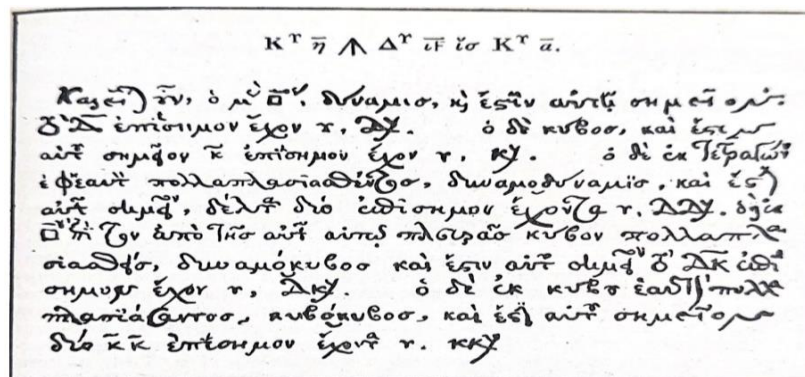 Κ^Υ η̄ ⩚ Δ^Υ ιϛ̄ ἴσ Κ^Υ ᾱ.
Καλεῖται οὖν, ὁ μὲν □ος, δύναμισ, κὶ ἔστιν αὐτῆς σημεῖον
τὸ Δ̄ ἐπίσημον ἔχον υ, Δυ. ὁ δὲ κυβοσ, καὶ ἔστιν
αὐτοῦ σημεῖον κ̄ ἐπίσημον ἔχον υ, κυ. ὁ δὲ ἐκ τετραγών
πολλαπλασιασθέντοσ, δυναμοδύναμϊσ, καὶ ἔστιν
αὐτοῦ σημεῖον, δέλτα δύο ἐπίσημον ἔχοντα υ, ΔΔυ.
ἐπὶ τὸν ἀπὸ τῆσ αὐτοῦ πλευρᾶσ κύβον πολλαπλα
σιασθέντος, δυναμόκυβοσ καὶ ἔστιν αὐτοῦ σημεῖον τὸ Δ̄Κ̄ ἐπί
σημον ἔχον υ, Δκυ. ὁ δὲ ἐκ κύβου ἑαυτὸν πολλα
πλασιάσαντοσ, κυβόκυβοσ, καὶ ἔστι αὐτοῦ σημεῖον
δύο κ̄κ̄ ἐπίσημον ἔχοντα υ. κκυ